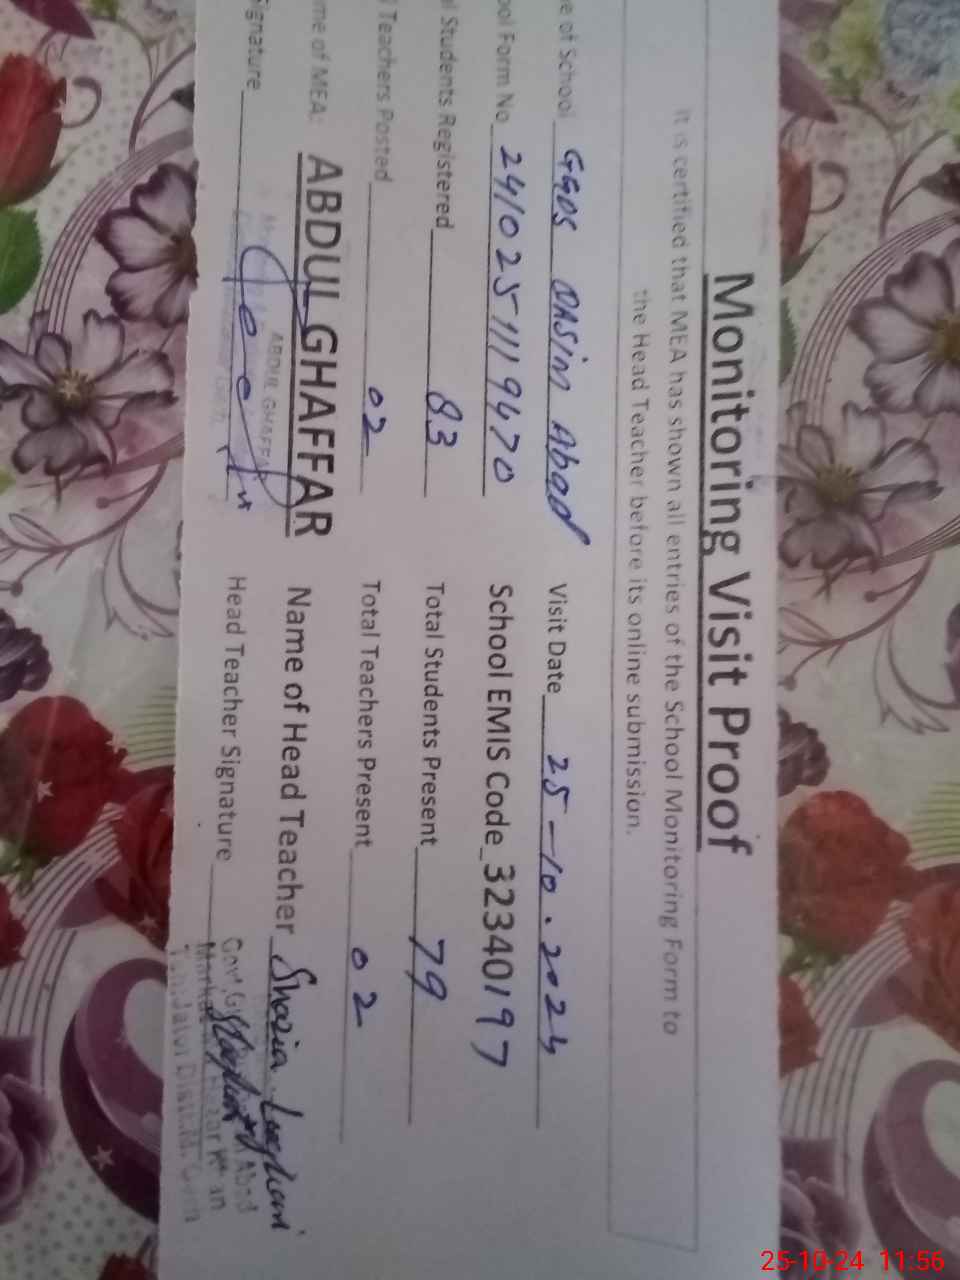 Monitoring Visit Proof
It is certified that MEA has shown all entries of the School Monitoring Form to
the Head Teacher before its online submission.
e of School GGPS Qasim Abad Visit Date 25-10.2024
ool Form No 2410251119470 School EMIS Code 32340197
l Students Registered 83 Total Students Present 79
l Teachers Posted 02 Total Teachers Present 02
me of MEA: ABDUL GHAFFAR Name of Head Teacher Shazia Leghari
Signature Head Teacher Signature
ABDUL GHAFF
25-10-24 11:56